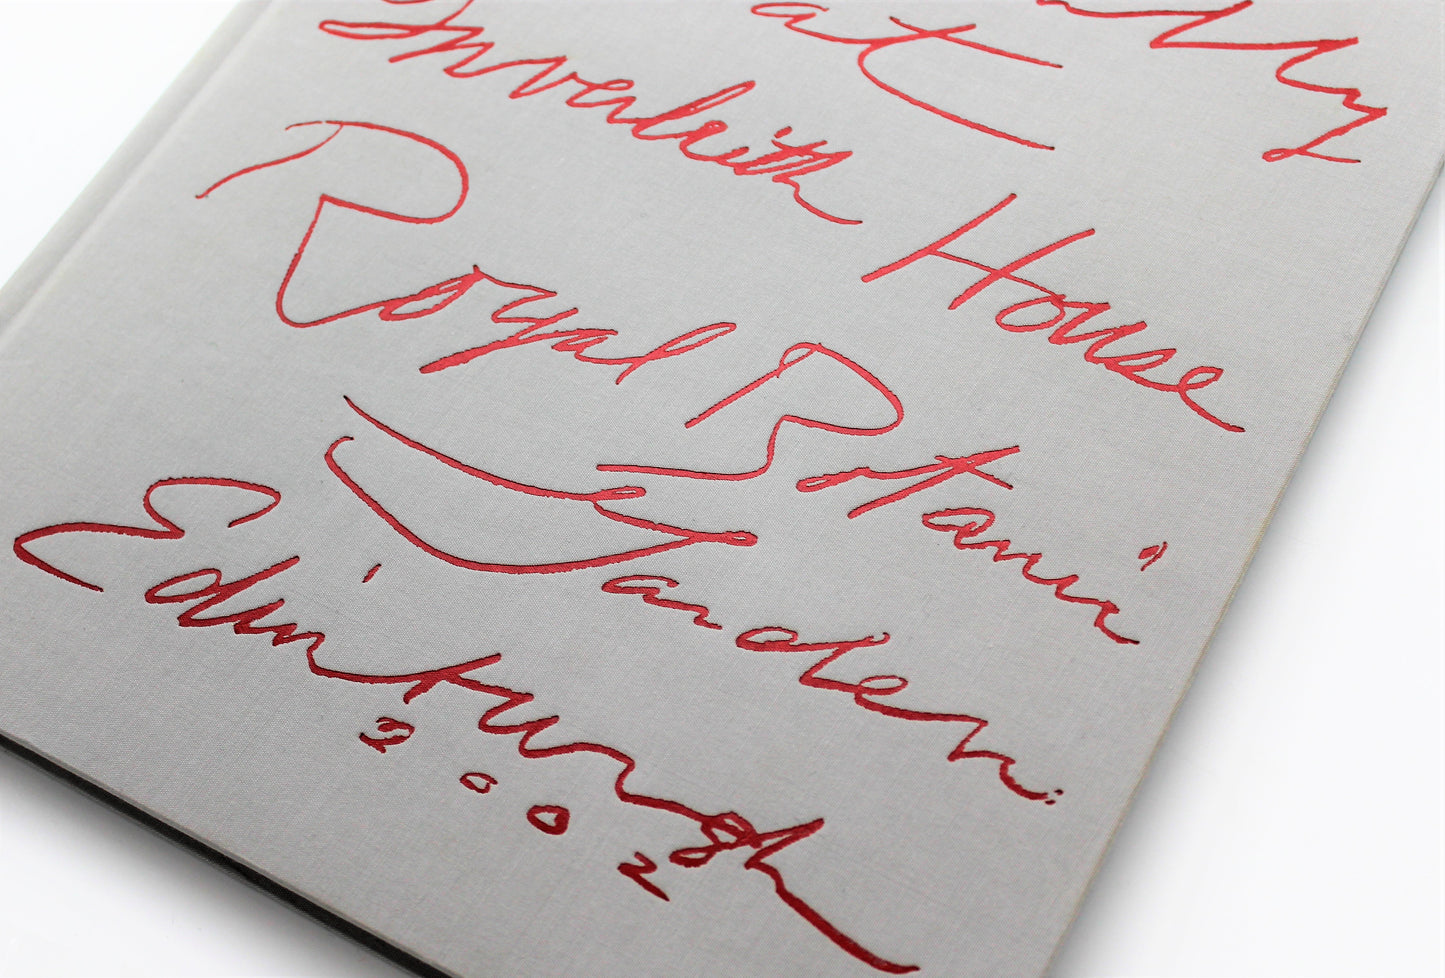 at
Inverleith House
Royal Botanic
Garden
Edinburgh
2002